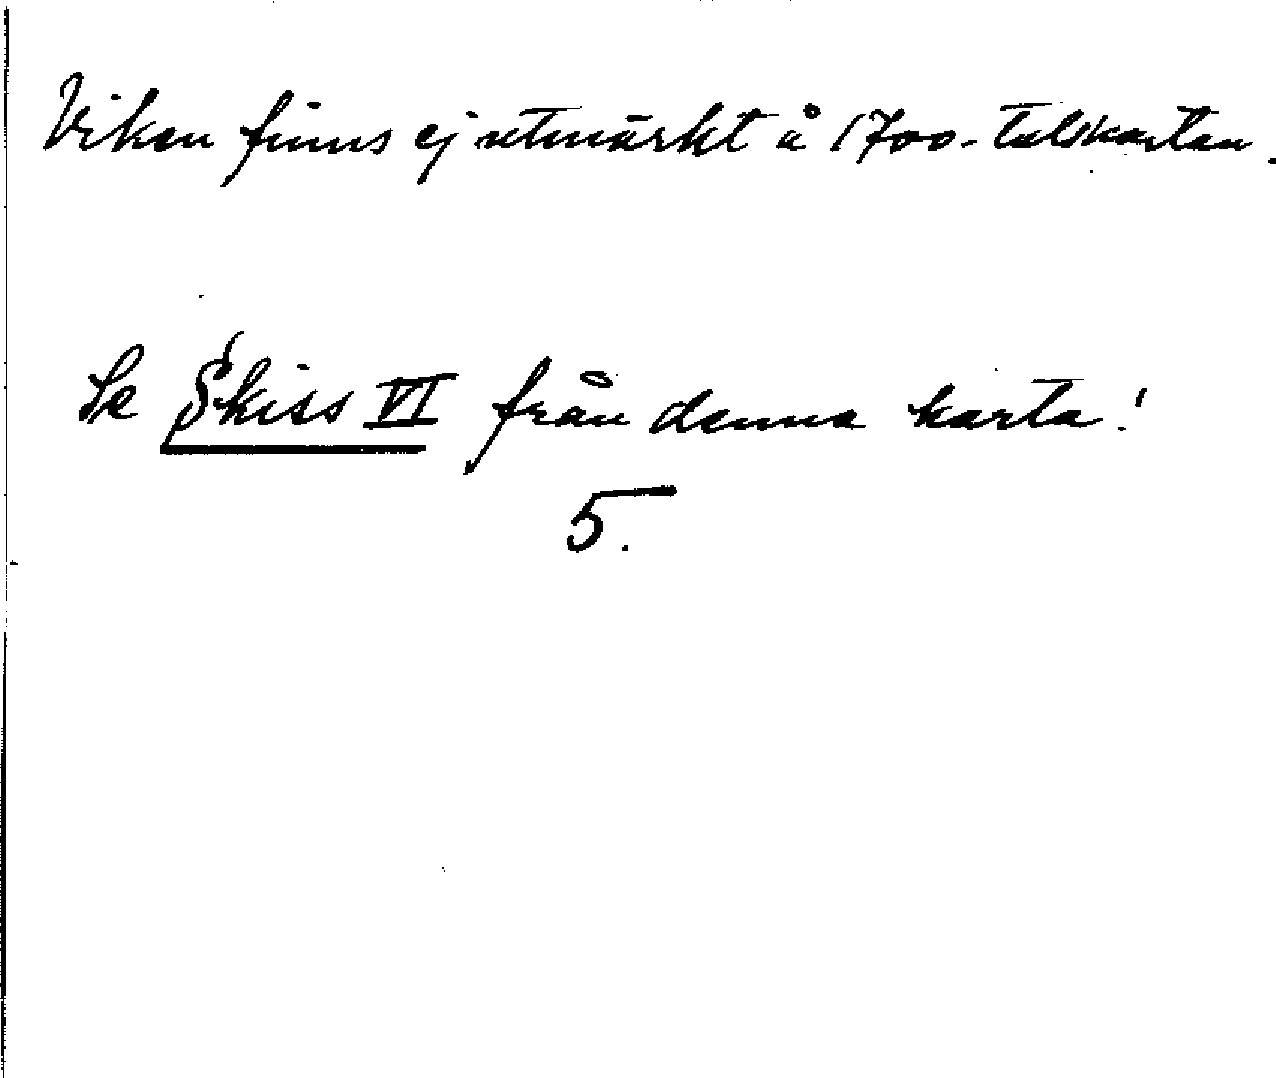 Viken finns ej utmärkt å 1700-talskartan.
Se Skiss VI från denna karta!
5.